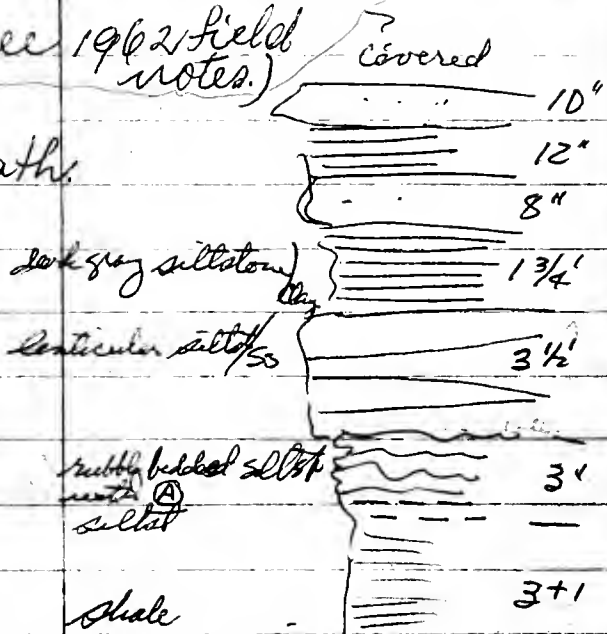 ee 1962 field
notes.)
covered
10"
12"
ath.
8"
dark gray siltstone/
clay
1 3/4'
lenticular siltst/ss
3 1/2'
rubbly bedded siltst
with Ⓐ
3'
siltst
3+'
shale